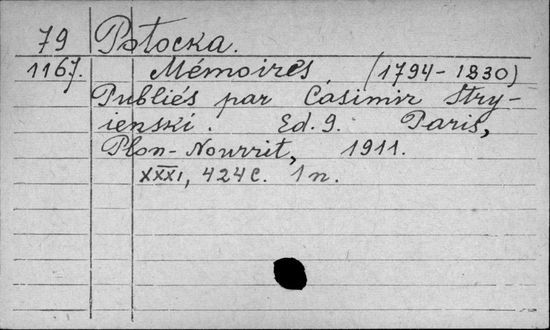 79 Potocka.
1167. Mémoires (1794-1830)
Publiés par Casimir Stry-
ienski. Ed. 9. Paris,
Plon-Nourrit, 1911.
XXXI, 424 c. 1 п.